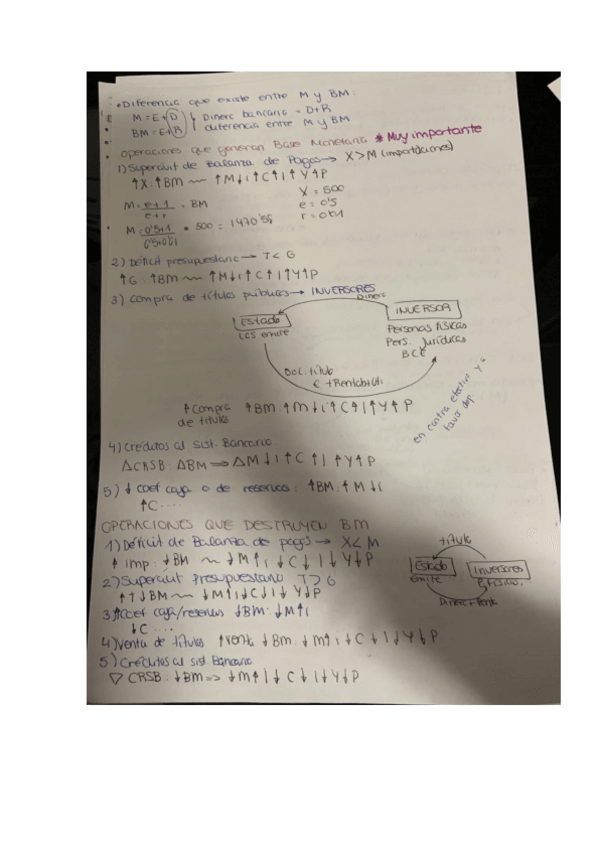 • Diferencia que existe entre M y BM:
M = E + D } Dinero bancario = D+R
BM = E + R } diferencia entre M y BM
• Operaciones que generan Base Monetaria * Muy importante
1) Superavit de Balanza de Pagos → X > M (importaciones)
↑X: ↑BM ~ ↑M↓i↑C↑I↑Y↑P
M = e+1 / e+r = BM
X = 500
e = 0'5
r = 0'01
M = 0'5+1 / 0'5+0'01 • 500 = 1470'58
2) Déficit presupuestario → T < G
↑G: ↑BM ~ ↑M↓i↑C↑I↑Y↑P
3) Compra de títulos públicos → INVERSORES
Dinero
Estado
LCS emite
INVERSOR
Personas físicas
Pers. Jurídicas
BCE
Doc. título
€ + Rentab
↑ Compra de títulos
↑BM ↑M↓i↑C↑I↑Y↑P
en contra efectivo y a favor dep.
4) Créditos al Sist. Bancario
△CRSB: △BM ⇒ △M↓i↑C↑I↑Y↑P
5) ↓ coef caja o de reservas: ↑BM: ↑M↓i
↑C ....
OPERACIONES QUE DESTRUYEN BM
1) Déficit de Balanza de pagos → X < M
↑ imp: ↓BM ~ ↓M↑i↓C↓I↓Y↓P
2) Superavit Presupuestario T > G
↑T↓BM ~ ↓M↑i↓C↓I↓Y↓P
3) ↑Coef caja/reservas ↓BM: ↓M↑i
↓C ....
título
Estado
emite
Inversores
Dinero + Rent
4) Venta de títulos ↑vent ↓Bm: ↓m↑i↓C↓I↓Y↓P
5) Créditos al sist. Bancario
▽ CRSB: ↓Bm => ↓m↑i↓C↓I↓Y↓P